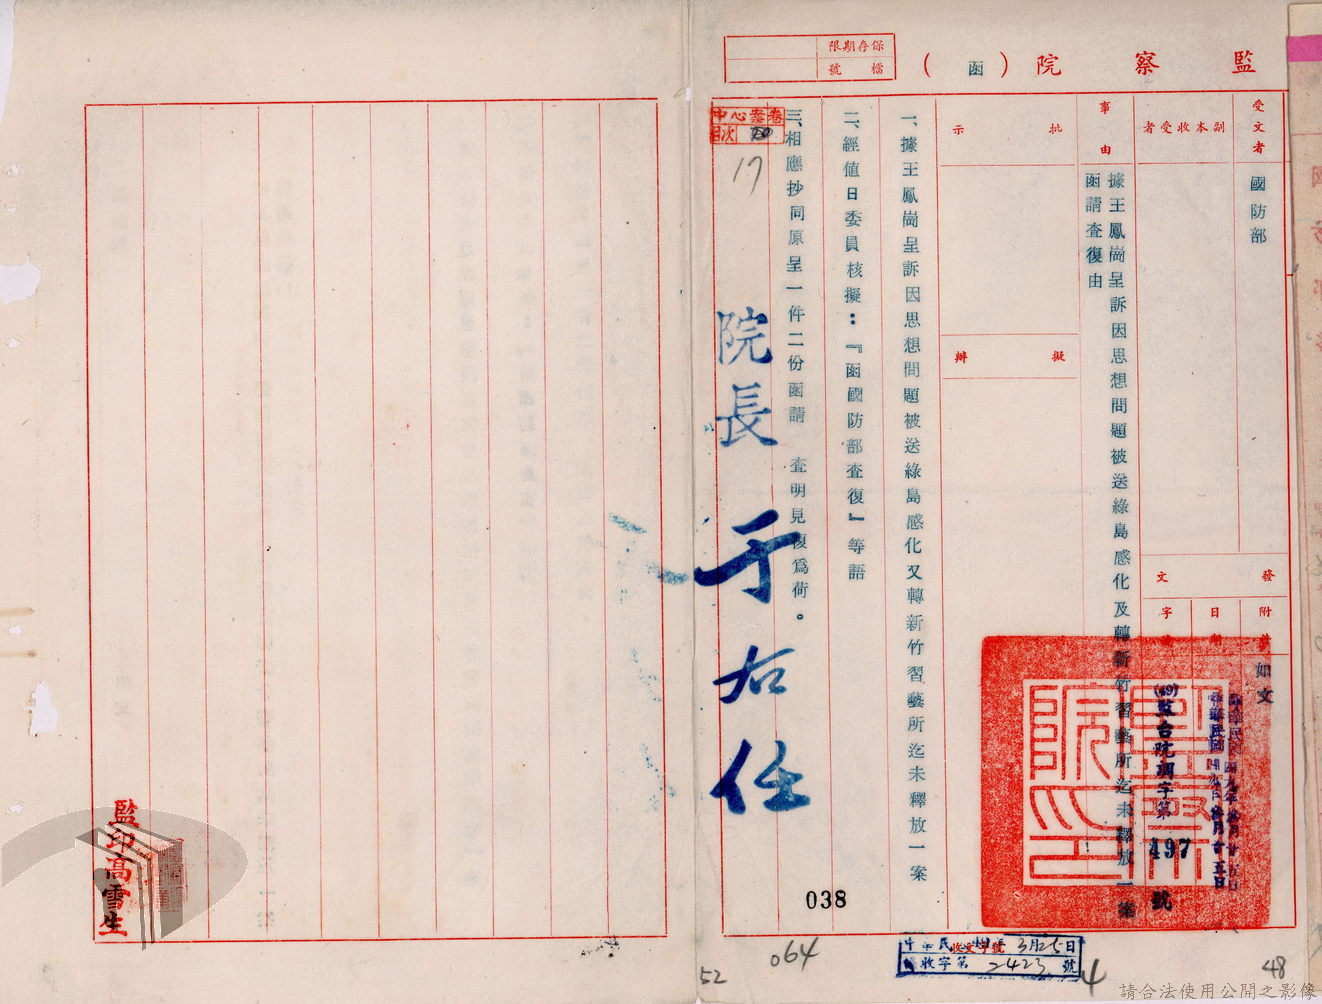 監察院（函）
保存期限
檔號
受文者
國防部
副本收受者
發文
附件
如文
日期
字號
(49)監台院調字第497號
事由
據王鳳崗呈訴因思想問題被送綠島感化及轉新竹習藝所迄未釋放一案
函請查復由
批示
擬辦
一、據王鳳崗呈訴因思想問題被送綠島感化又轉新竹習藝所迄未釋放一案
二、經值日委員核擬：『函國防部查復』等語
三、相應抄同原呈一件二份函請　查明見復為荷。
中心案卷
目次
17
院長于右任
監察院印
038
064
52
收文字號
3月25日
收字第2423號
4
48
監印高雪生
請合法使用公開之影像